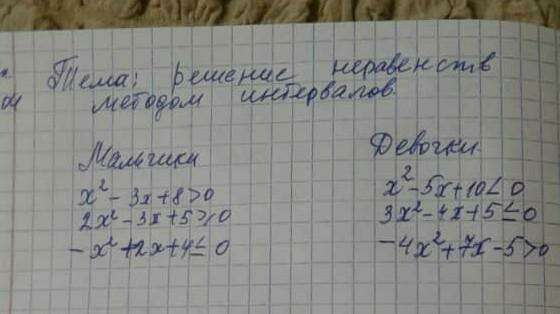 Тема: решение неравенств
методом интервалов.
Мальчики
x² - 3x + 8 > 0
2x² - 3x + 5 ≥ 0
- x² + 2x + 4 ≤ 0
Девочки
x² - 5x + 10 ≤ 0
3x² - 4x + 5 ≤ 0
- 4x² + 7x - 5 > 0